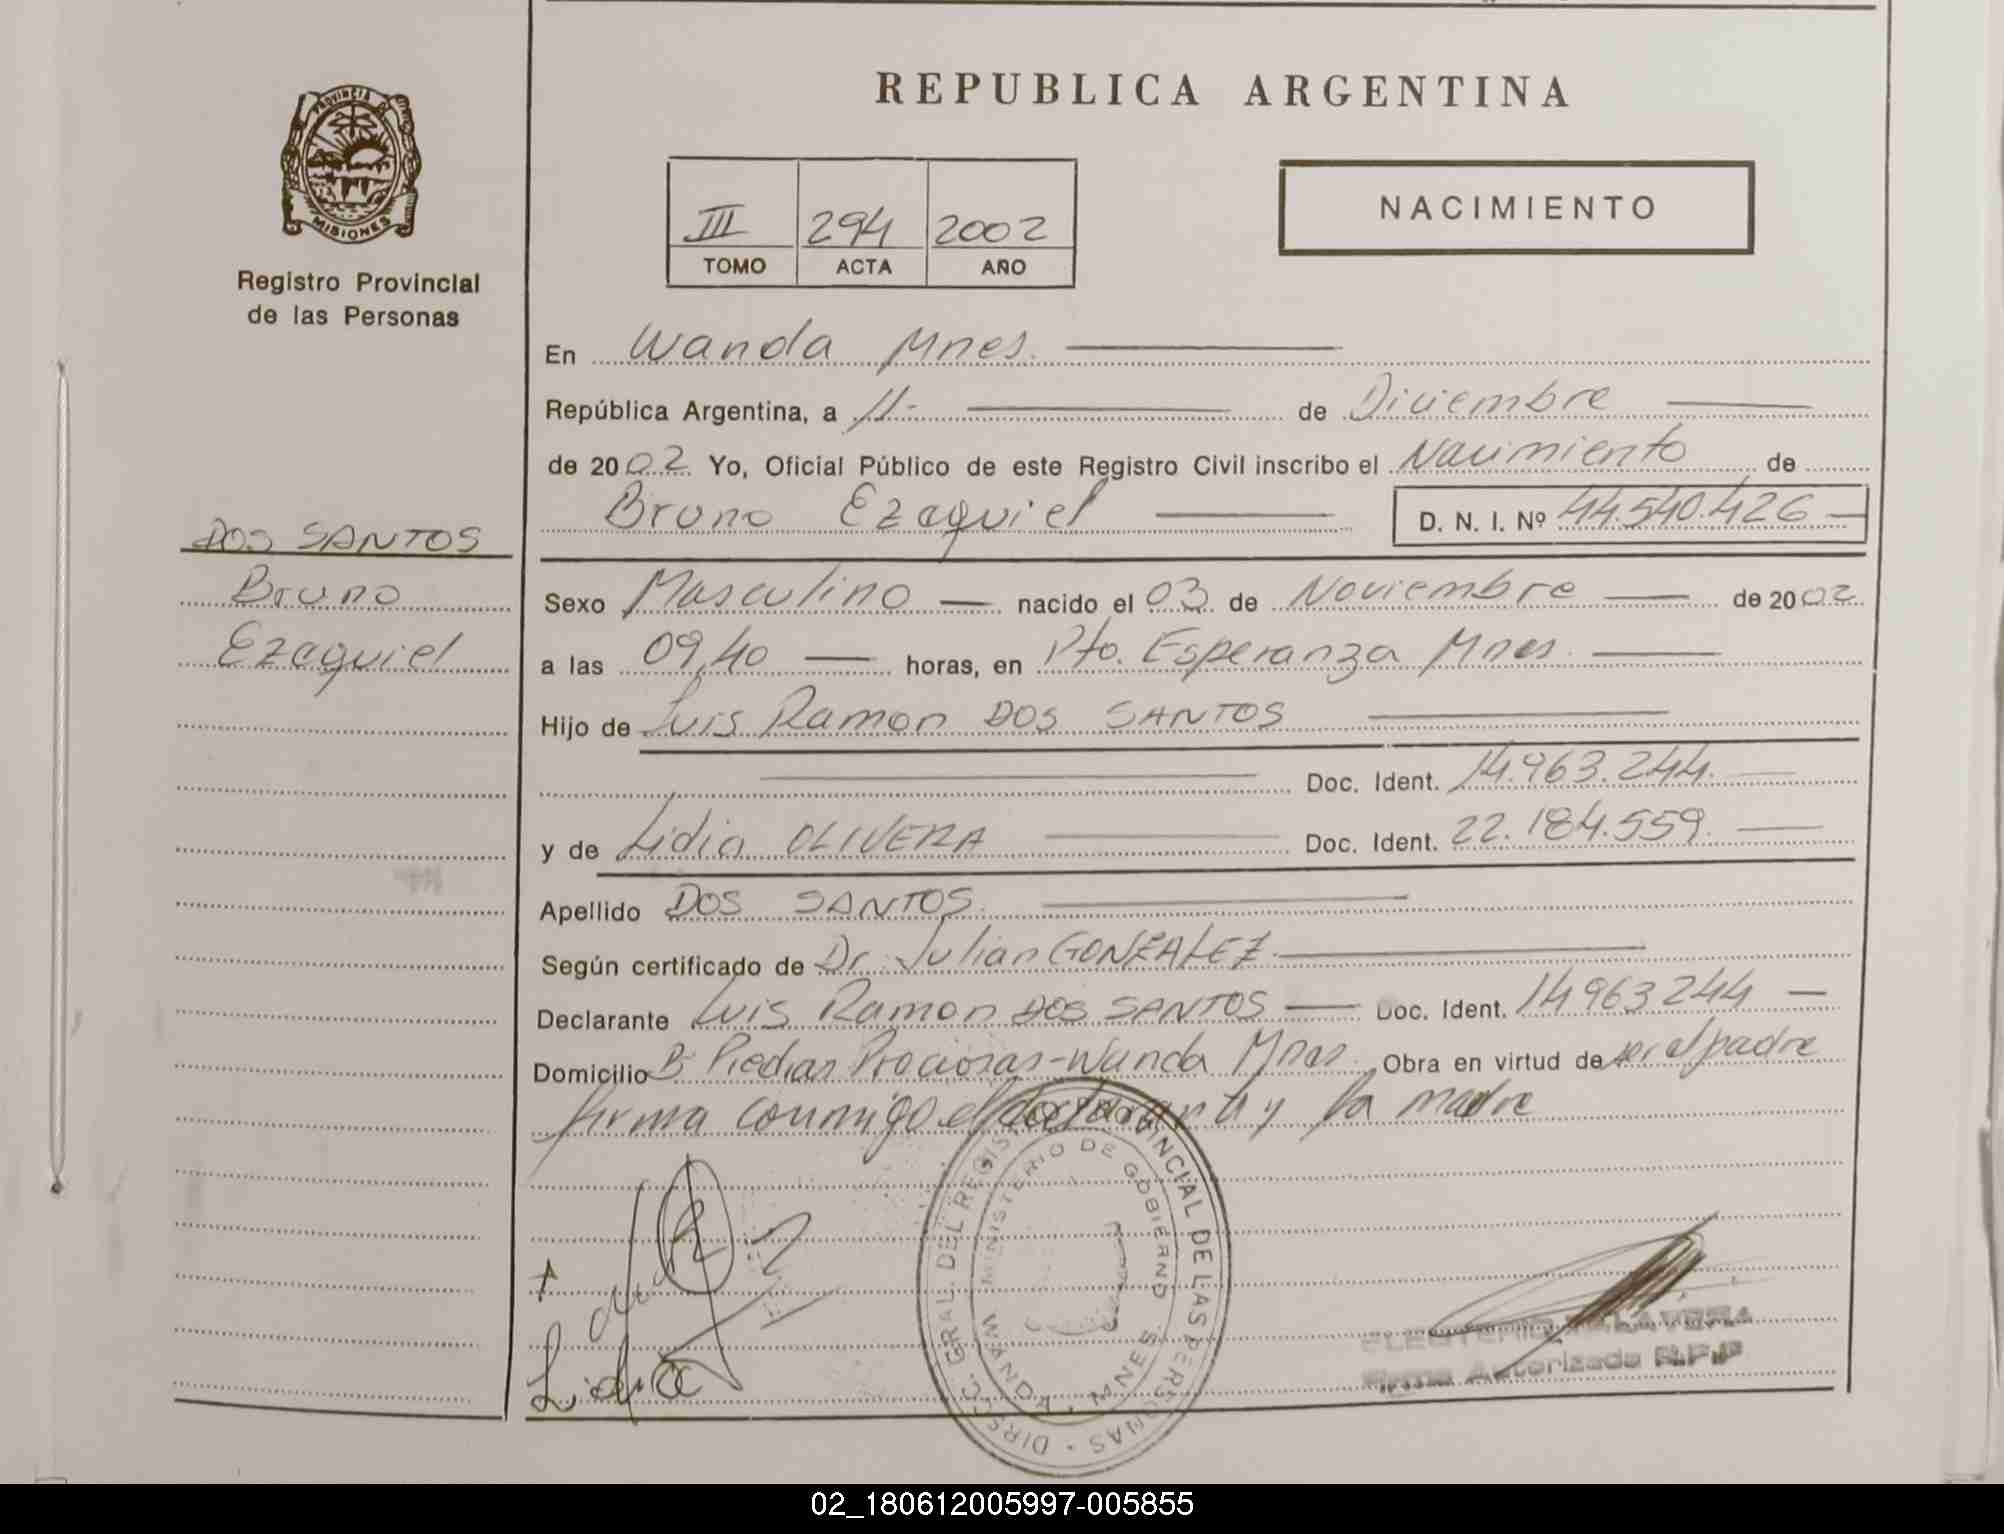 REPUBLICA ARGENTINA
PROVINCIA DE
MISIONES
Registro Provincial
de las Personas
III 294 2002
TOMO ACTA AÑO
NACIMIENTO
En Wanda Mnes.
República Argentina, a 11- de Diciembre
de 2002 Yo, Oficial Público de este Registro Civil inscribo el Nacimiento de
Bruno Ezequiel D. N. I. Nº 44.540.426
DOS SANTOS
Bruno
Ezequiel
Sexo Masculino nacido el 03 de Noviembre de 2002
a las 09,40 horas, en Pto. Esperanza Mnes.
Hijo de Luis Ramon DOS SANTOS
Doc. Ident. 14.963.244.
y de Lidia OLIVERA Doc. Ident. 22.184.559.
Apellido DOS SANTOS.
Según certificado de Dr. Julian GONZALEZ.
Declarante Luis Ramon DOS SANTOS Doc. Ident. 14963244
Domicilio Bº Piedras Preciosas-Wanda Mnes. Obra en virtud de ser el padre
firma conmigo el declarante y la madre
DIREC. GRAL. DEL REGISTRO PROVINCIAL DE LAS PERSONAS
MINISTERIO DE GOBIERNO
WANDA - MNES
Lidia
Firma Autorizada R.P.P
02_180612005997-005855